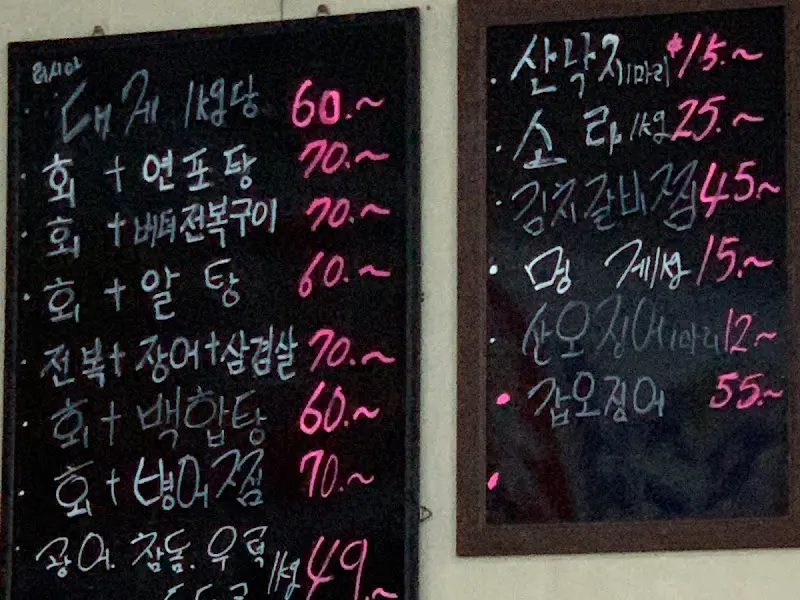 러시아
대게 1kg당 60.~
회 + 연포탕 70.~
회 + 버터전복구이 70.~
회 + 알탕 60.~
전복 + 장어 + 삼겹살 70.~
회 + 백합탕 60.~
회 + 병어찜 70.~
광어. 참돔. 우럭 1kg 49.~
산낙지 1마리 $15.~
소라 1kg 25.~
김치갈비찜 45~
멍게 1kg 15.~
산오징어 1마리 12~
갑오징어 55.~